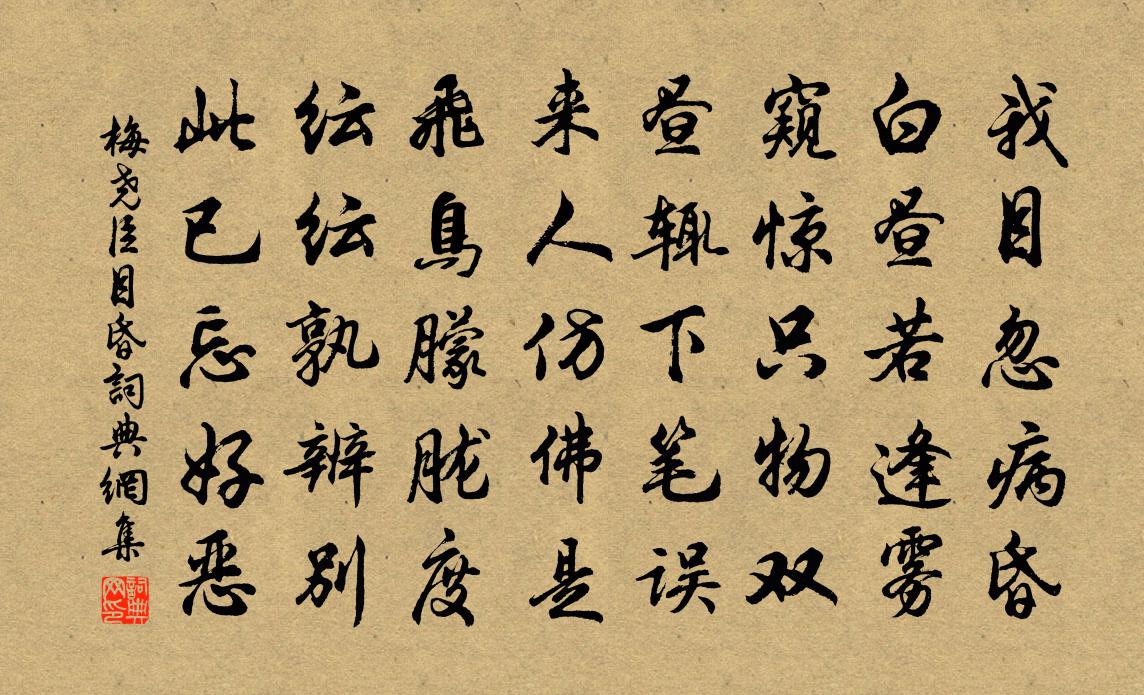 我目忽病昏
白昼若逢雾
窥惊只物双
昼辄下笔误
来人仿佛是
飛鳥朦胧度
纭纭孰辨别
此已忘好恶
梅尧臣目昏詞典網集
詞典网印